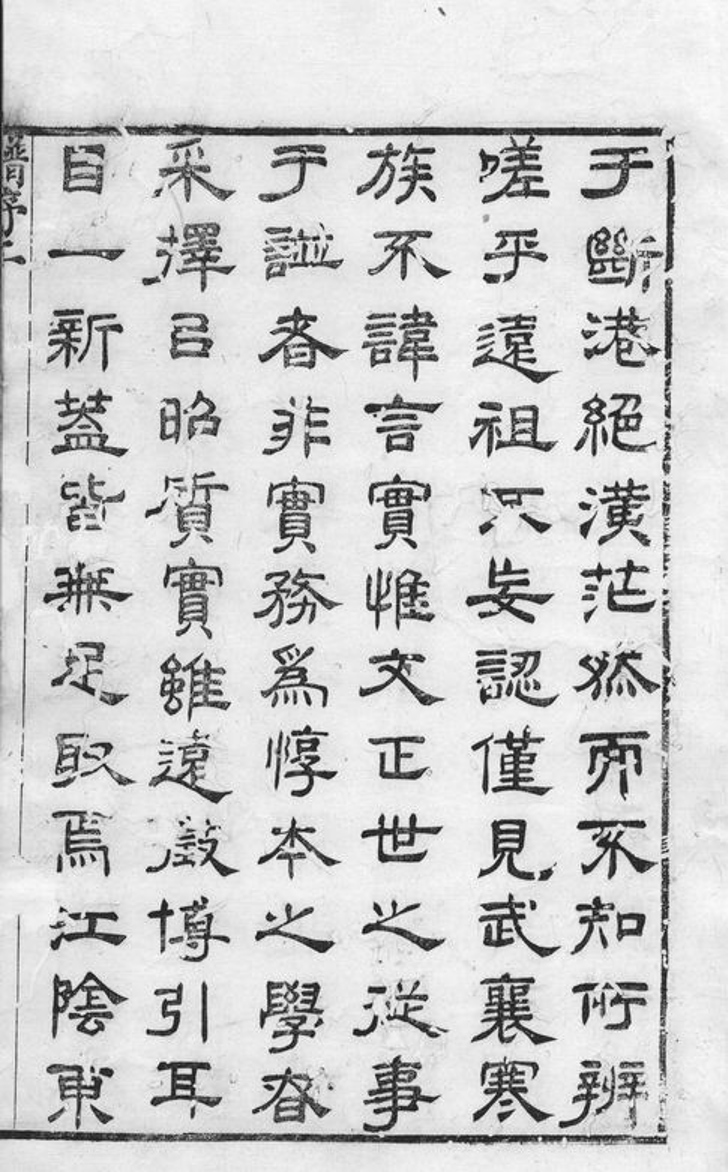 于斷港絕潢茫然而不知所辨
嗟乎遠祖不妄認僅見武襄寒
族不諱言實惟文正世之從事
于譜者非實務為惇本之學者
采擇㠯昭質實雖遠㪘博引耳
目一新葢皆無足取焉江陰東
譜序二